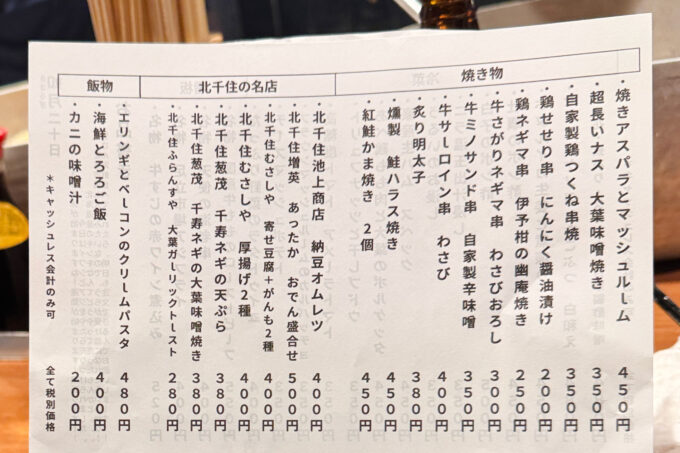 焼き物
・焼きアスパラとマッシュルーム 450円
・超長いナス 大葉味噌焼き 350円
・自家製鶏つくね串焼 350円
・鶏せせり串 にんにく醤油漬け 200円
・鶏ネギマ串 伊予柑の幽庵焼き 250円
・牛さがりネギマ串 わさびおろし 300円
・牛ミノサンド串 自家製辛味噌 350円
・牛サーロイン串 わさび 400円
・炙り明太子 380円
・燻製 鮭ハラス焼き 450円
・紅鮭かま焼き 2個 450円
北千住の名店
・北千住池上商店 納豆オムレツ 400円
・北千住増英 あったか おでん盛合せ 500円
・北千住むさしや 寄せ豆腐+がんも2種 400円
・北千住むさしや 厚揚げ2種 400円
・北千住葱茂 千寿ネギの天ぷら 380円
・北千住葱茂 千寿ネギの大葉味噌焼き 380円
・北千住ふらんすや 大葉ガーリックトースト 280円
飯物
・エリンギとベーコンのクリームパスタ 480円
・海鮮とろろご飯 400円
・カニの味噌汁 200円
*キャッシュレス会計のみ可 全て税別価格